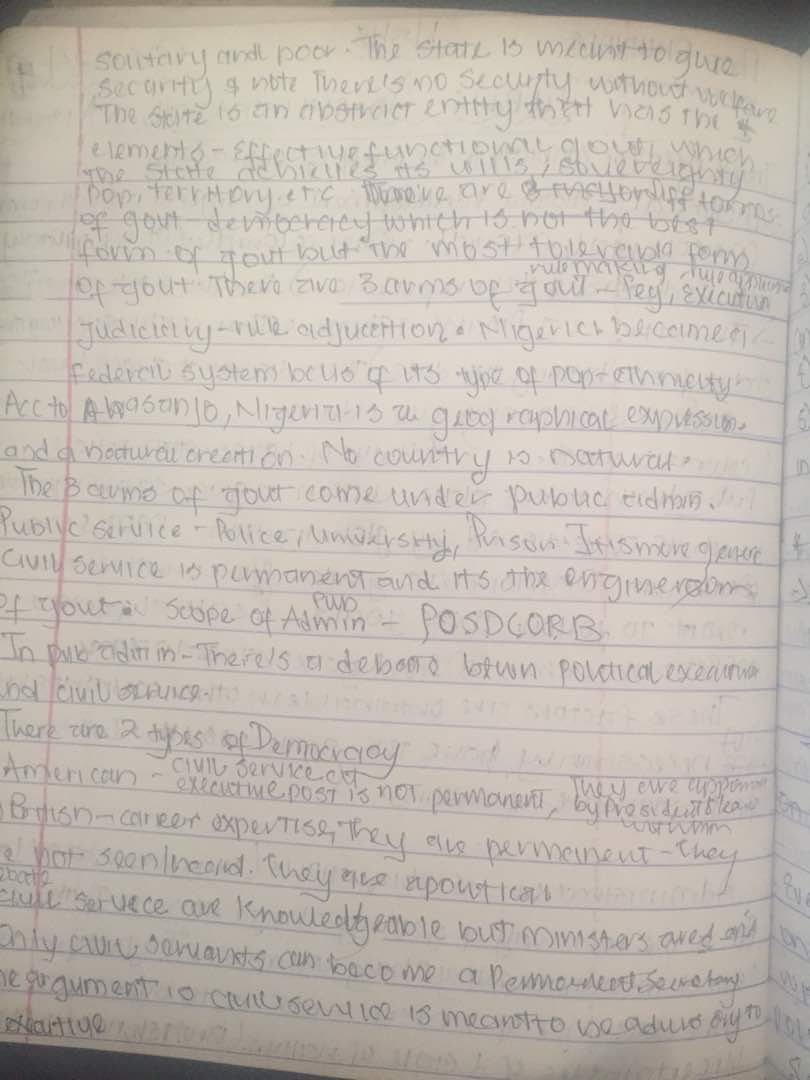 solitary and poor. The state is meant to give
security & note There's no security without welfare
The state is an abstract entity that has the
elements - Effective functional govt, which
the state achieves its wills, sovereignty
pop, territory, etc. There are diff forms
of govt - democracy which is not the best
form of govt but the most tolerable form
rulemaking rule
of govt There are 3 arms of govt - leg, execution
Judiciary - rule adjucertion. Nigeria became a
federal system bcus of its type of pop + ethnicity
Acc to Awasanjo, Nigeria is a geographical expression.
and a natural creation. No country is natural.
The 3 arms of govt come under public admin.
Public service - Police, university, Prison. It is more
Civil service is permanent and its the engine room
of govt. Scope of pub Admin - POSDCORB
In pub admin - There's a debate btwn political executive
and civil service.
There are 2 types of Democracy
American - civil service at
executive post is not permanent, They are
by President & leave
British - career expertise, They are permanent - They
not seen/heard. They are apolitical
civil service are knowledgeable but ministers
Only civil servants can become a Permanent Secretary
argument is civil service is meant to be advisory to
executive